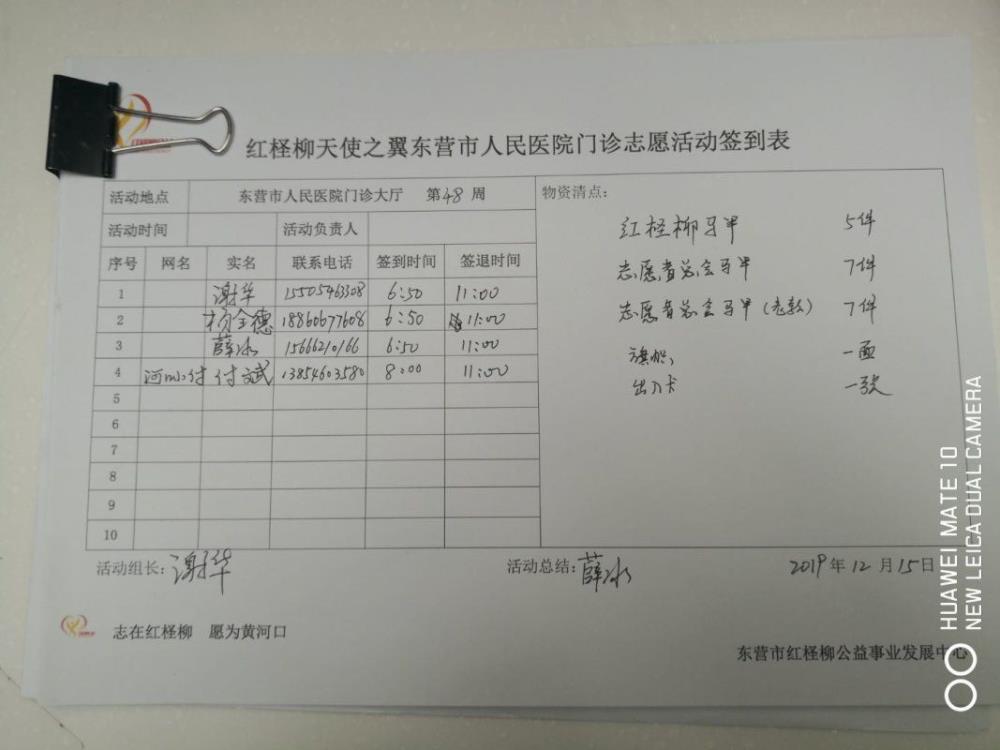 红柽柳天使之翼东营市人民医院门诊志愿活动签到表
活动地点 东营市人民医院门诊大厅 第48周 物资清点:
活动时间 活动负责人 红柽柳马甲 5件
序号 网名 实名 联系电话 签到时间 签退时间 志愿者总会马甲 7件
1 谢华 15505463308 6:50 11:00 志愿者总会马甲(老款) 7件
2 杨全德 18860677608 6:50 11:00
3 薛冰 15666210166 6:50 11:00 旗帜 一面
4 付斌 13854603580 8:00 11:00 出入卡 一张
5
6
7
8
9
10
活动组长: 谢华 活动总结: 薛冰 2019年12月15日
志在红柽柳 愿为黄河口
东营市红柽柳公益事业发展中心
HUAWEI MATE 10
NEW LEICA DUAL CAMERA